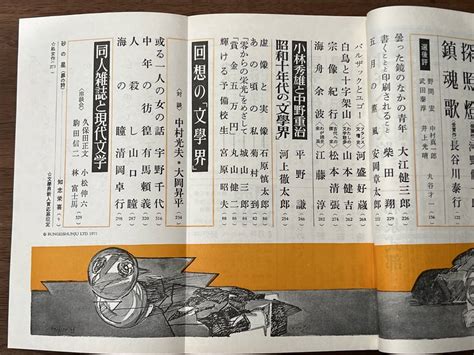 探照燈
鎮魂歌
選後評
野間宏
武田泰淳
中村真一郎
井上光晴
丸谷才一
曇った鏡のなかの青年 大江健三郎
書くことと印刷されること 柴田翔
五月の薫風 安岡章太郎
バルザックとユゴー 河盛好蔵
白鳥と十字架 山本健吉
宗像紀行 松本清張
海舟余波 江藤淳
小林秀雄と中野重治 平野謙
昭和十年代の文學界 河上徹太郎
虚像の実像 石原慎太郎
“零からの栄光をめざして” 城山三郎
「賞金五万円」 丸山健二
輝ける予備校生 宮原昭夫
回想の「文學界」
(対談) 中村光夫・大岡昇平
或る一人の女の話 宇野千代
中年の彷徨 有馬頼義
人殺し 山口瞳
海の瞳 清岡卓行
同人雑誌と現代文学
(座談会) 久保田正文 小松伸六
駒田信二 林富士馬
砂の巣
知念栄喜
© BUNGEISHUNJU LTD 1971